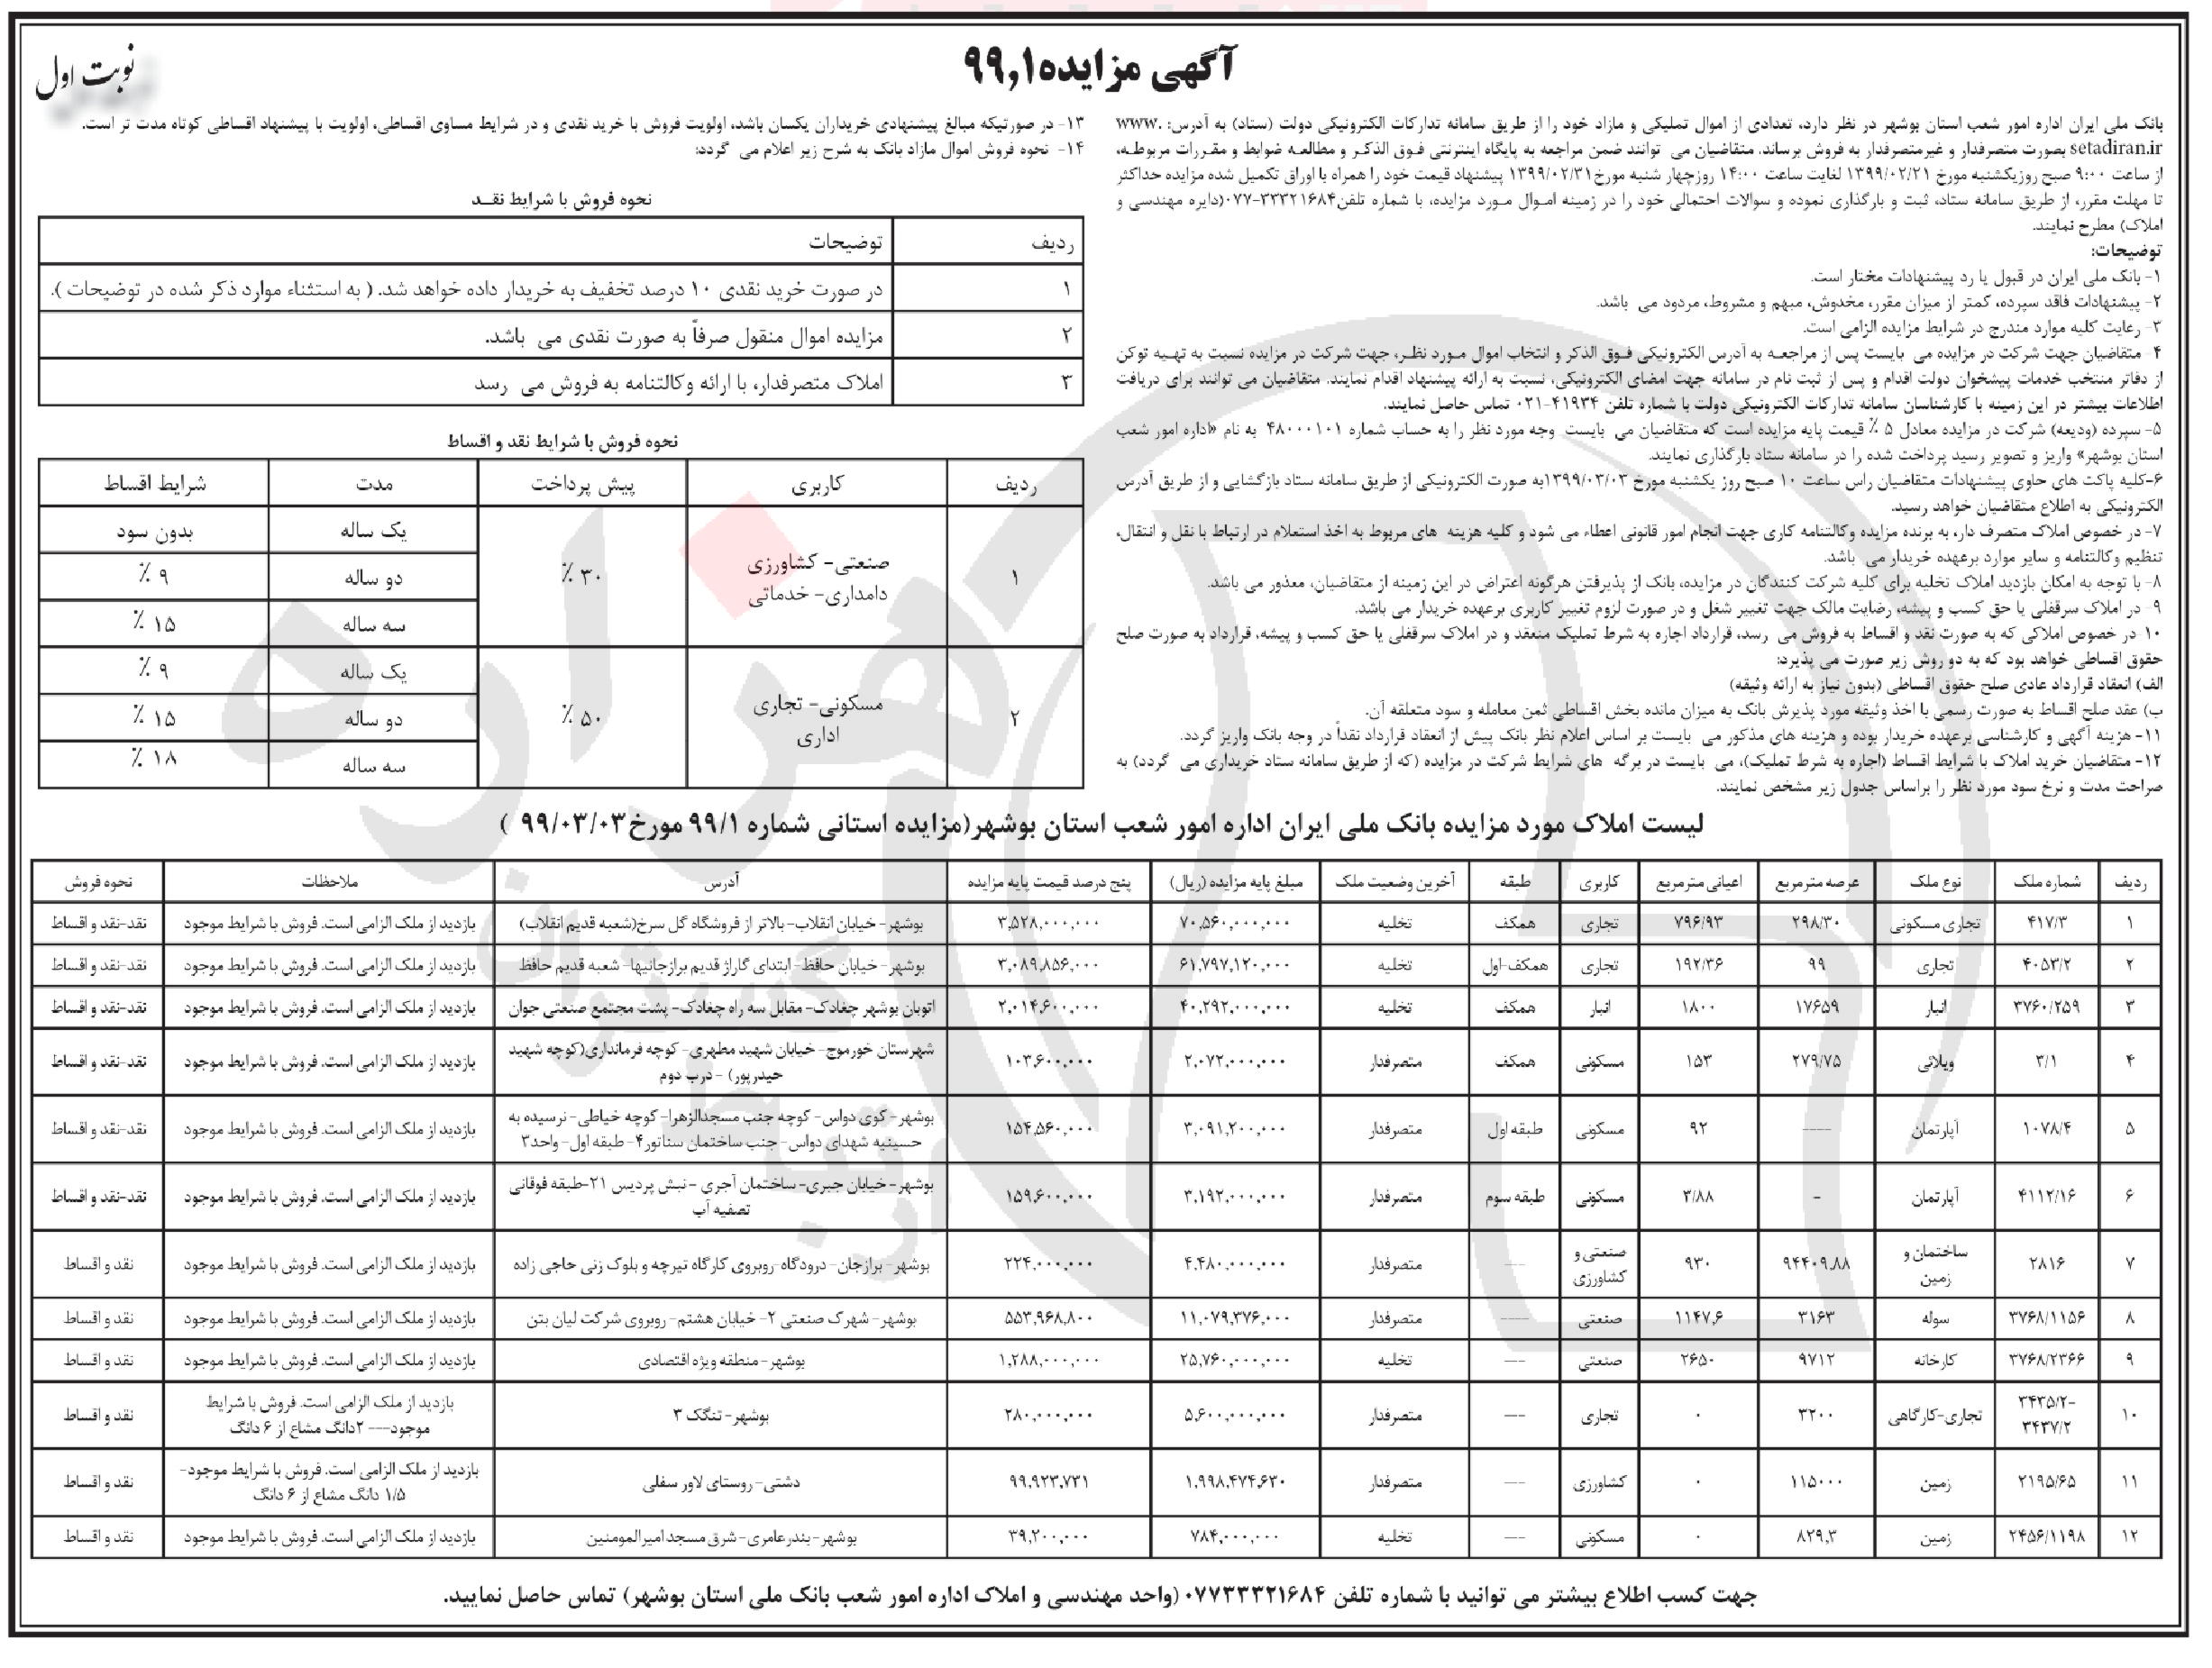 آگهی مزایده۹۹٫۱
نوبت اول
بانک ملی ایران اداره امور شعب استان بوشهر در نظر دارد، تعدادی از اموال تملیکی و مازاد خود را از طریق سامانه تدارکات الکترونیکی دولت (ستاد) به آدرس: www.
setadiran.ir بصورت متصرفدار و غیرمتصرفدار به فروش برساند. متقاضیان می توانند ضمن مراجعه به پایگاه اینترنتی فوق الذکر و مطالعه ضوابط و مقررات مربوطه،
از ساعت ۹:۰۰ صبح روزیکشنبه مورخ ۱۳۹۹/۰۲/۲۱ لغایت ساعت ۱۴:۰۰ روزچهار شنبه مورخ۱۳۹۹/۰۲/۳۱ پیشنهاد قیمت خود را همراه با اوراق تکمیل شده مزایده حداکثر
تا مهلت مقرر، از طریق سامانه ستاد، ثبت و بارگذاری نموده و سوالات احتمالی خود را در زمینه اموال مورد مزایده، با شماره تلفن۳۳۳۲۱۶۸۴-۰۷۷(دایره مهندسی و
املاک) مطرح نمایند.
توضیحات:
۱- بانک ملی ایران در قبول یا رد پیشنهادات مختار است.
۲- پیشنهادات فاقد سپرده، کمتر از میزان مقرر، مخدوش، مبهم و مشروط، مردود می باشد.
۳- رعایت کلیه موارد مندرج در شرایط مزایده الزامی است.
۴- متقاضیان جهت شرکت در مزایده می بایست پس از مراجعه به آدرس الکترونیکی فوق الذکر و انتخاب اموال مورد نظر، جهت شرکت در مزایده نسبت به تهیه توکن
از دفاتر منتخب خدمات پیشخوان دولت اقدام و پس از ثبت نام در سامانه جهت امضای الکترونیکی، نسبت به ارائه پیشنهاد اقدام نمایند. متقاضیان می توانند برای دریافت
اطلاعات بیشتر در این زمینه با کارشناسان سامانه تدارکات الکترونیکی دولت با شماره تلفن ۴۱۹۳۴-۰۲۱ تماس حاصل نمایند.
۵- سپرده (ودیعه) شرکت در مزایده معادل ۵ ٪ قیمت پایه مزایده است که متقاضیان می بایست وجه مورد نظر را به حساب شماره ۴۸۰۰۰۱۰۱ به نام «اداره امور شعب
استان بوشهر» واریز و تصویر رسید پرداخت شده را در سامانه ستاد بارگذاری نمایند.
۶-کلیه پاکت های حاوی پیشنهادات متقاضیان راس ساعت ۱۰ صبح روز یکشنبه مورخ ۱۳۹۹/۰۳/۰۳به صورت الکترونیکی از طریق سامانه ستاد بازگشایی و از طریق آدرس
الکترونیکی به اطلاع متقاضیان خواهد رسید.
۷- در خصوص املاک متصرف دار، به برنده مزایده وکالتنامه کاری جهت انجام امور قانونی اعطاء می شود و کلیه هزینه های مربوط به اخذ استعلام در ارتباط با نقل و انتقال،
تنظیم وکالتنامه و سایر موارد برعهده خریدار می باشد.
۸- با توجه به امکان بازدید املاک تخلیه برای کلیه شرکت کنندگان در مزایده، بانک از پذیرفتن هرگونه اعتراض در این زمینه از متقاضیان، معذور می باشد.
۹- در املاک سرقفلی یا حق کسب و پیشه، رضایت مالک جهت تغییر شغل و در صورت لزوم تغییر کاربری برعهده خریدار می باشد.
۱۰- در خصوص املاکی که به صورت نقد و اقساط به فروش می رسد، قرارداد اجاره به شرط تملیک منعقد و در املاک سرقفلی یا حق کسب و پیشه، قرارداد به صورت صلح
حقوق اقساطی خواهد بود که به دو روش زیر صورت می پذیرد:
الف) انعقاد قرارداد عادی صلح حقوق اقساطی (بدون نیاز به ارائه وثیقه)
ب) عقد صلح اقساط به صورت رسمی با اخذ وثیقه مورد پذیرش بانک به میزان مانده بخش اقساطی ثمن معامله و سود متعلقه آن.
۱۱- هزینه آگهی و کارشناسی برعهده خریدار بوده و هزینه های مذکور می بایست بر اساس اعلام نظر بانک پیش از انعقاد قرارداد نقداً در وجه بانک واریز گردد.
۱۲- متقاضیان خرید املاک با شرایط اقساط (اجاره به شرط تملیک)، می بایست در برگه های شرایط شرکت در مزایده (که از طریق سامانه ستاد خریداری می گردد) به
صراحت مدت و نرخ سود مورد نظر را براساس جدول زیر مشخص نمایند.
۱۳- در صورتیکه مبالغ پیشنهادی خریداران یکسان باشد، اولویت فروش با خرید نقدی و در شرایط مساوی اقساطی، اولویت با پیشنهاد اقساطی کوتاه مدت تر است.
۱۴- نحوه فروش اموال مازاد بانک به شرح زیر اعلام می گردد:
نحوه فروش با شرایط نقد
ردیف توضیحات
۱ در صورت خرید نقدی ۱۰ درصد تخفیف به خریدار داده خواهد شد. ( به استثناء موارد ذکر شده در توضیحات ).
۲ مزایده اموال منقول صرفاً به صورت نقدی می باشد.
۳ املاک متصرفدار، با ارائه وکالتنامه به فروش می رسد
نحوه فروش با شرایط نقد و اقساط
ردیف کاربری پیش پرداخت مدت شرایط اقساط
۱ صنعتی- کشاورزی دامداری- خدماتی ۳۰ ٪ یک ساله بدون سود
دو ساله ۹ ٪
سه ساله ۱۵ ٪
۲ مسکونی- تجاری اداری ۵۰ ٪ یک ساله ۹ ٪
دو ساله ۱۵ ٪
سه ساله ۱۸ ٪
لیست املاک مورد مزایده بانک ملی ایران اداره امور شعب استان بوشهر(مزایده استانی شماره ۹۹/۱ مورخ۹۹/۰۳/۰۳ )
ردیف شماره ملک نوع ملک عرصه مترمربع اعیانی مترمربع کاربری طبقه آخرین وضعیت ملک مبلغ پایه مزایده (ریال) پنج درصد قیمت پایه مزایده آدرس ملاحظات نحوه فروش
۱ ۴۱۷/۳ تجاری مسکونی ۲۹۸/۳۰ ۷۹۶/۹۳ تجاری همکف تخلیه ۷۰،۵۶۰،۰۰۰،۰۰۰ ۳،۵۲۸،۰۰۰،۰۰۰ بوشهر- خیابان انقلاب- بالاتر از فروشگاه گل سرخ(شعبه قدیم انقلاب) بازدید از ملک الزامی است. فروش با شرایط موجود نقد-نقد و اقساط
۲ ۴۰۵۳/۲ تجاری ۹۹ ۱۹۲/۳۶ تجاری همکف-اول تخلیه ۶۱،۷۹۷،۱۲۰،۰۰۰ ۳،۰۸۹،۸۵۶،۰۰۰ بوشهر- خیابان حافظ- ابتدای گاراژ قدیم برازجانیها- شعبه قدیم حافظ بازدید از ملک الزامی است. فروش با شرایط موجود نقد-نقد و اقساط
۳ ۳۷۶۰/۲۵۹ انبار ۱۷۶۵۹ ۱۸۰۰ انبار همکف تخلیه ۴۰،۲۹۲،۰۰۰،۰۰۰ ۲،۰۱۴،۶۰۰،۰۰۰ اتوبان بوشهر چغادک- مقابل سه راه چغادک- پشت مجتمع صنعتی جوان بازدید از ملک الزامی است. فروش با شرایط موجود نقد-نقد و اقساط
۴ ۳/۱ ویلائی ۲۷۹/۷۵ ۱۵۳ مسکونی همکف متصرفدار ۲،۰۷۲،۰۰۰،۰۰۰ ۱۰۳،۶۰۰،۰۰۰ شهرستان خورموج- خیابان شهید مطهری- کوچه فرمانداری(کوچه شهید حیدرپور) -درب دوم بازدید از ملک الزامی است. فروش با شرایط موجود نقد-نقد و اقساط
۵ ۱۰۷۸/۴ آپارتمان ---- ۹۲ مسکونی طبقه اول متصرفدار ۳،۰۹۱،۲۰۰،۰۰۰ ۱۵۴،۵۶۰،۰۰۰ بوشهر- کوی دواس- کوچه جنب مسجدالزهرا- کوچه خیاطی- نرسیده به حسینیه شهدای دواس- جنب ساختمان سناتور۴- طبقه اول- واحد۳ بازدید از ملک الزامی است. فروش با شرایط موجود نقد-نقد و اقساط
۶ ۴۱۱۲/۱۶ آپارتمان - ۳/۸۸ مسکونی طبقه سوم متصرفدار ۳،۱۹۲،۰۰۰،۰۰۰ ۱۵۹،۶۰۰،۰۰۰ بوشهر- خیابان جبری- ساختمان آجری - نبش پردیس ۲۱-طبقه فوقانی تصفیه آب بازدید از ملک الزامی است. فروش با شرایط موجود نقد-نقد و اقساط
۷ ۲۸۱۶ ساختمان و زمین ۹۴۴۰۹٫۸۸ ۹۳۰ صنعتی و کشاورزی --- متصرفدار ۴،۴۸۰،۰۰۰،۰۰۰ ۲۲۴،۰۰۰،۰۰۰ بوشهر- برازجان- درودگاه-روبروی کارگاه تیرچه و بلوک زنی حاجی زاده بازدید از ملک الزامی است. فروش با شرایط موجود نقد و اقساط
۸ ۳۷۶۸/۱۱۵۶ سوله ۳۱۶۳ ۱۱۴۷٫۶ صنعتی ---- متصرفدار ۱۱،۰۷۹،۳۷۶،۰۰۰ ۵۵۳،۹۶۸،۸۰۰ بوشهر- شهرک صنعتی ۲- خیابان هشتم- روبروی شرکت لیان بتن بازدید از ملک الزامی است. فروش با شرایط موجود نقد و اقساط
۹ ۳۷۶۸/۲۳۶۶ کارخانه ۹۷۱۲ ۲۶۵۰ صنعتی --- تخلیه ۲۵،۷۶۰،۰۰۰،۰۰۰ ۱،۲۸۸،۰۰۰،۰۰۰ بوشهر-منطقه ویژه اقتصادی بازدید از ملک الزامی است. فروش با شرایط موجود نقد و اقساط
۱۰ ۳۴۳۵/۲- ۳۴۳۷/۲ تجاری-کارگاهی ۳۲۰۰ ۰ تجاری --- متصرفدار ۵،۶۰۰،۰۰۰،۰۰۰ ۲۸۰،۰۰۰،۰۰۰ بوشهر- تنگک ۳ بازدید از ملک الزامی است. فروش با شرایط موجود--- ۲دانگ مشاع از ۶ دانگ نقد و اقساط
۱۱ ۲۱۹۵/۶۵ زمین ۱۱۵۰۰۰ ۰ کشاورزی --- متصرفدار ۱،۹۹۸،۴۷۴،۶۳۰ ۹۹،۹۲۳،۷۳۱ دشتی- روستای لاور سفلی بازدید از ملک الزامی است. فروش با شرایط موجود- ۱/۵ دانگ مشاع از ۶ دانگ نقد و اقساط
۱۲ ۲۴۵۶/۱۱۹۸ زمین ۸۲۹٫۳ ۰ مسکونی --- تخلیه ۷۸۴،۰۰۰،۰۰۰ ۳۹،۲۰۰،۰۰۰ بوشهر-بندرعامری-شرق مسجد امیرالمومنین بازدید از ملک الزامی است. فروش با شرایط موجود نقد و اقساط
جهت کسب اطلاع بیشتر می توانید با شماره تلفن ۰۷۷۳۳۳۲۱۶۸۴ (واحد مهندسی و املاک اداره امور شعب بانک ملی استان بوشهر) تماس حاصل نمایید.
هزاره